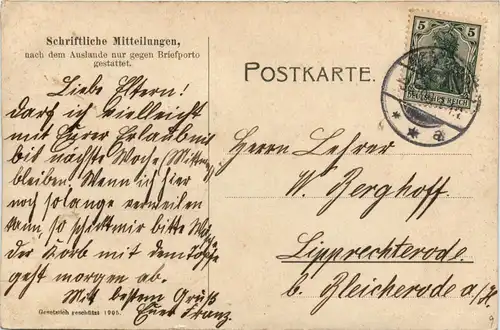 Schriftliche Mitteilungen,
nach dem Auslande nur gegen Briefporto
gestattet.
Liebe Eltern!
Darf ich vielleicht
mit Eurer Erlaubnis
bis nächste Woche (Mittw.)
bleiben. Wenn ich hier
noch solange verweilen
kann, so schickt mir bitte
der Korb mit dem
geht morgen ab.
Mit bestem Gruß
Euer Franz.
Gesetzlich geschützt 1905.
POSTKARTE.
5 5
DEUTSCHES REICH
* * a
Herrn Lehrer
W. Berghoff.
Lipprechterode
b. Bleicherode a/H.